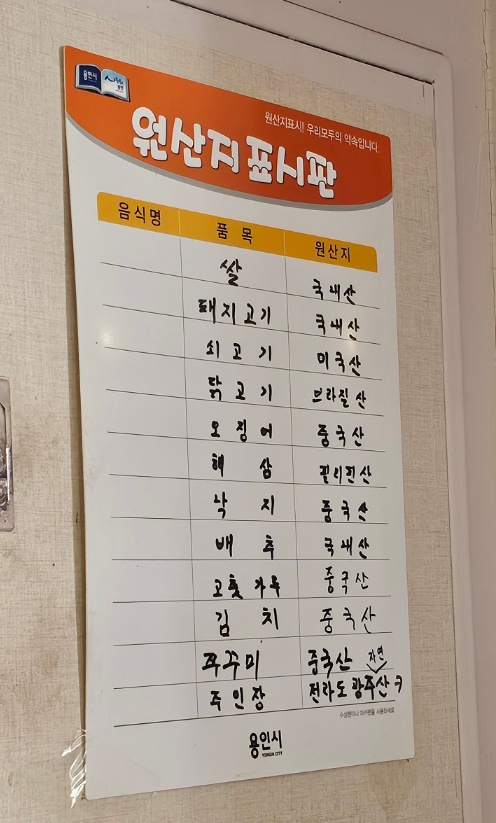 용인시
원산지표시! 우리모두의 약속입니다.
원산지 표시판
음식명 품 목 원산지
쌀 국내산
돼지고기 국내산
쇠고기 미국산
닭고기 브라질산
오징어 중국산
해 삼 필리핀산
낙 지 중국산
배 추 국내산
고춧가루 중국산
김 치 중국산
쭈꾸미 중국산
자연
주인장 전라도 광주산ㅋ
용인시
YONGIN CITY